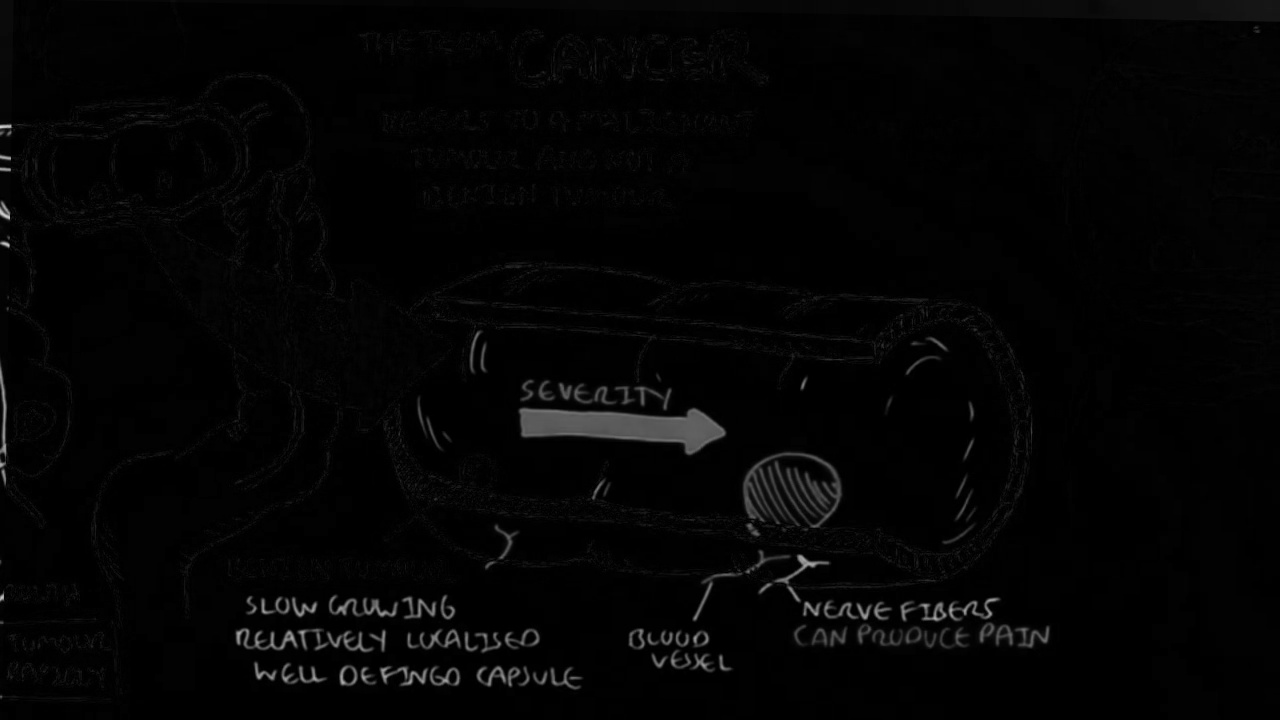 THE TERM CANCER
RESULTS TO A MALIGNANT
TUMOUR AND NOT A
BENIGN TUMOUR
SEVERITY
BENIGN TUMOUR
SLOW GROWING
RELATIVELY LOCALISED
WELL DEFINED CAPSULE
BLOOD
VESSEL
NERVE FIBERS
CAN PRODUCE PAIN
TUMOUR